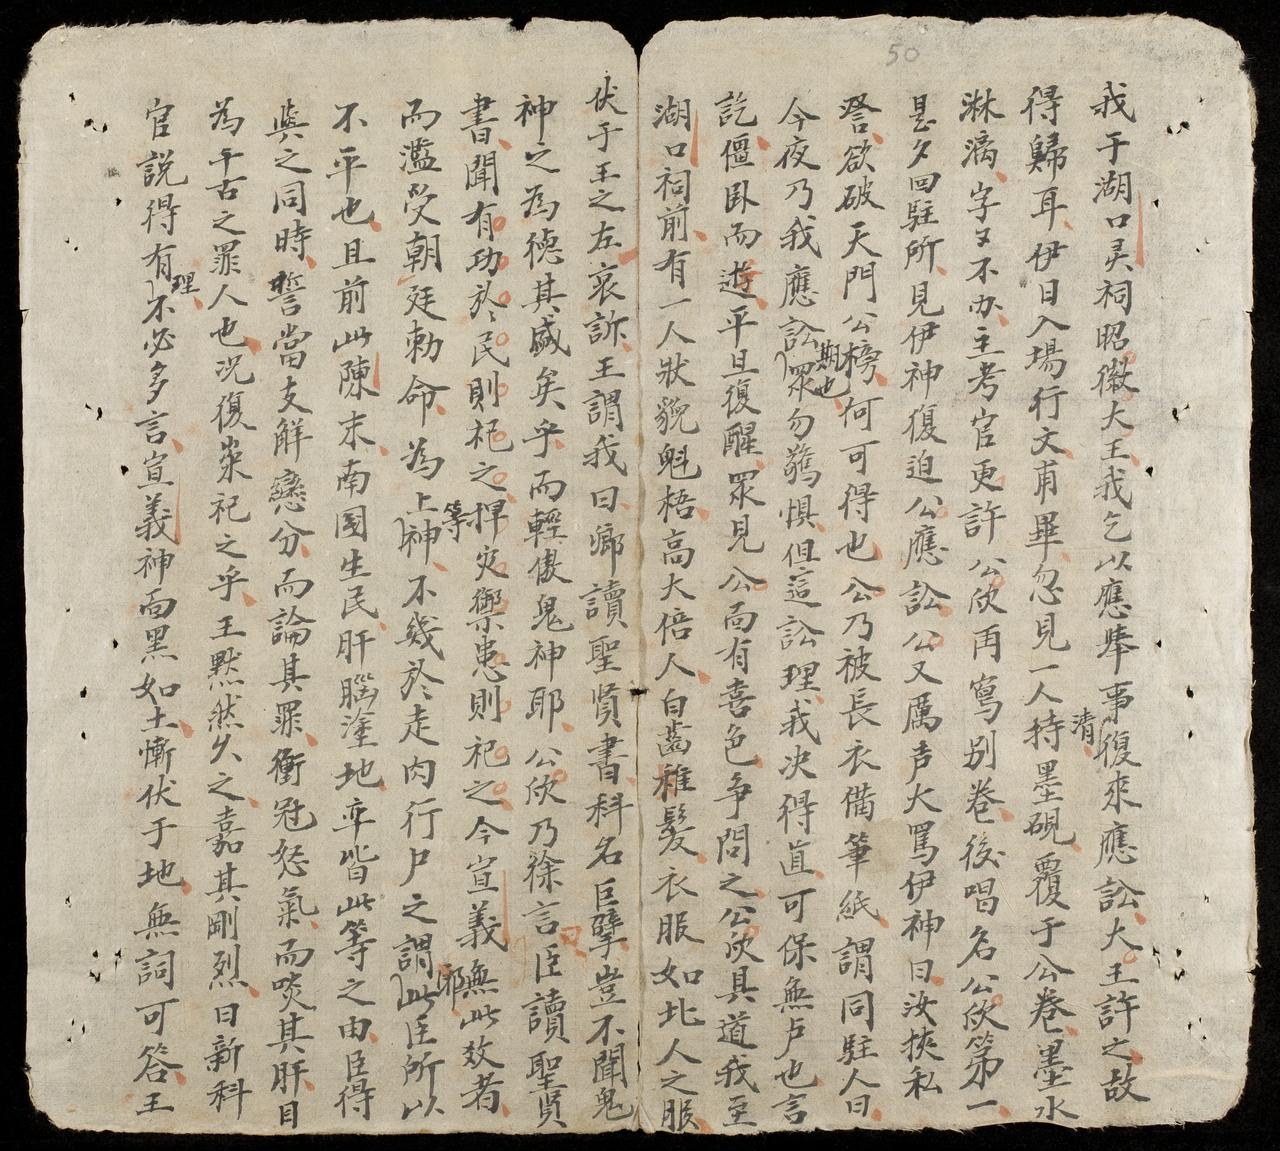 50
我于湖口灵祠昭徽大王我乞以應舉事清復來應訟大王許之故
得歸耳伊日入場行文甫畢忽見一人持墨硯覆于公卷墨水
淋漓字又不办主考官更許公欣再寫别卷後唱名公欣第一
是夕回駐所見伊神復迫公應訟公又厲声大罵伊神曰汝挾私
咎欲破天門公榜何可得也公乃被長衣備筆紙謂同駐人曰
今夜乃我應訟期也眾勿驚惧但這訟理我决得直可保無户也言
訖僵卧而遊平旦復醒眾見公面有喜色争問之公欣具道我至
湖口祠前有一人狀貌魁梧高大倍人白齒稚髮衣服如北人之服
伏于王之左哀訴王謂我曰鄉讀聖賢書科名巨擘豈不聞鬼
神之為德其盛矣乎而輕傲鬼神耶公欣乃徐言臣讀聖賢
書聞有功於民則祀之捍灾禦患則祀之今宣義無此效者
而濫受朝廷勅命為上等神不幾於走肉行尸之謂耶此臣所以
不平也且前此陳末南國生民肝腦塗地卒皆此等之由臣得
與之同時誓當支解臠分而論其罪衝冠怒氣而啖其肝目
為千古之罪人也况復崇祀之乎王默然久之嘉其剛烈曰新科
官説得有理不必多言宣義神面黑如土慚伏于地無詞可答王